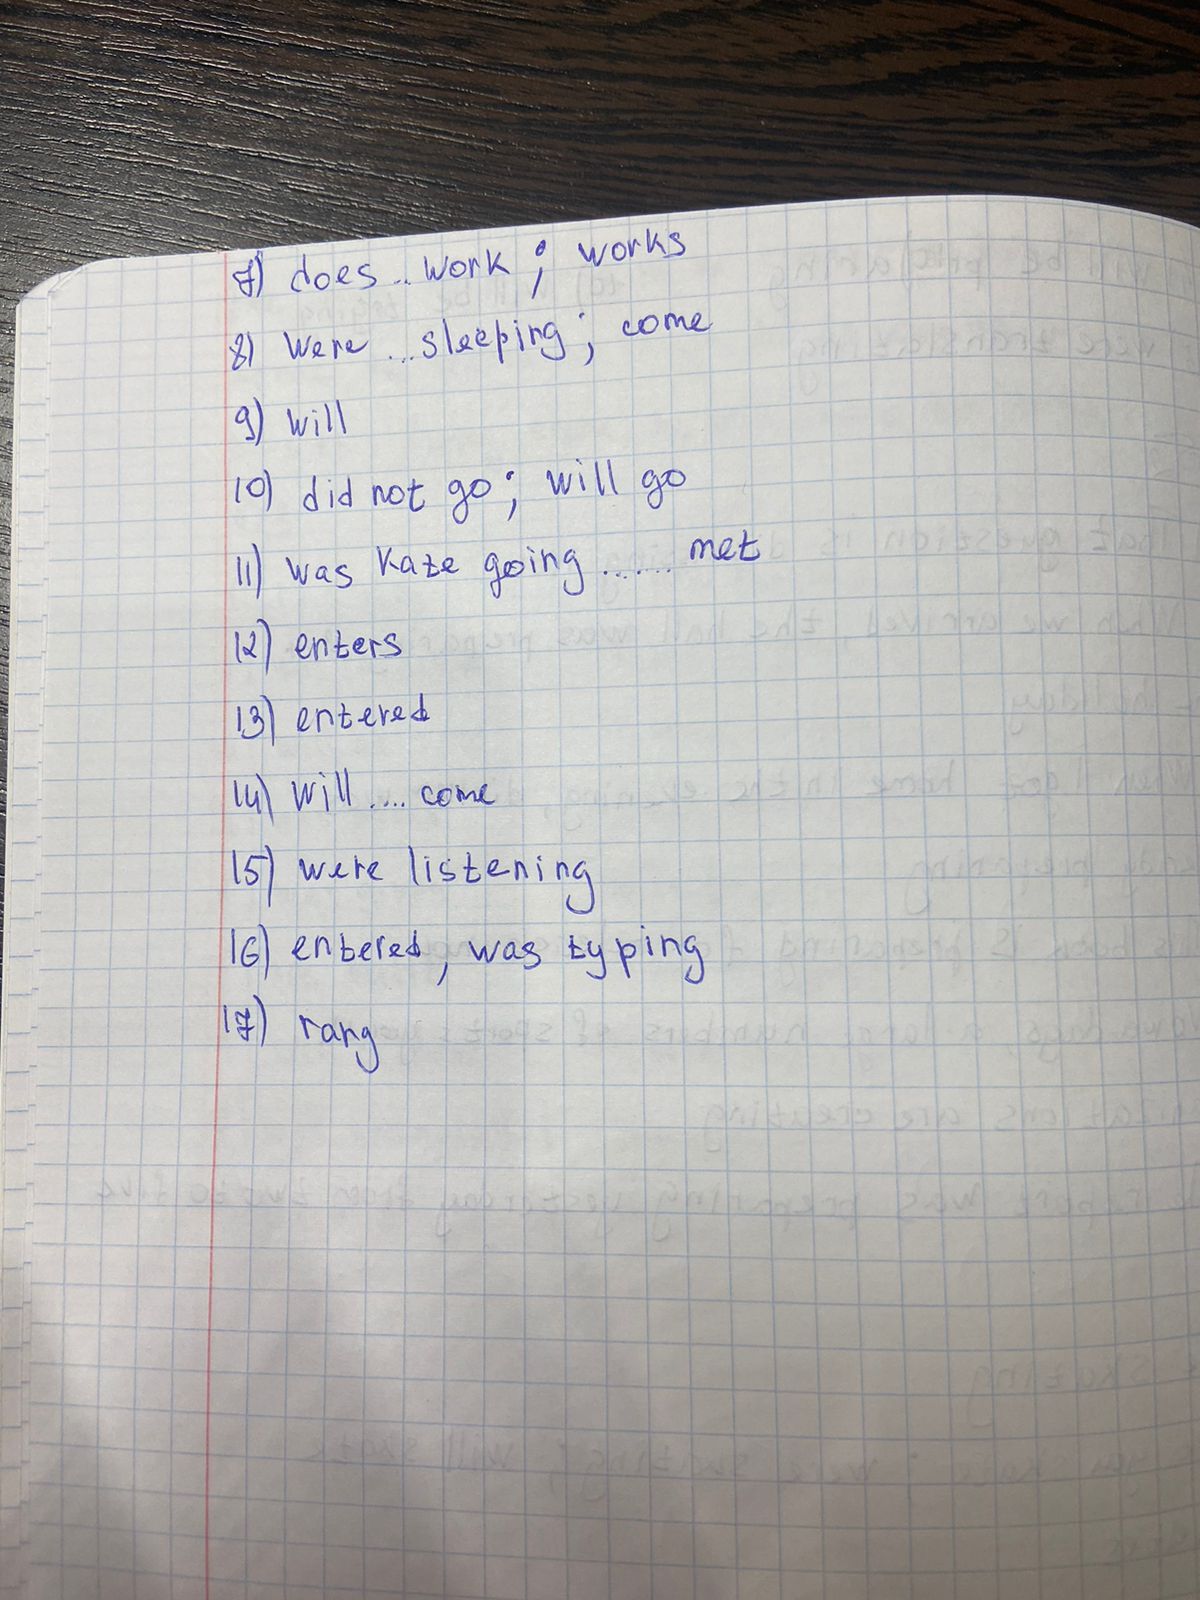 7) does .. work ; works
8) were ... sleeping ; come
9) will
10) did not go ; will go
11) was Kate going ...... met
12) enters
13) entered
14) will .... come
15) were listening
16) entered, was typing
17) rang